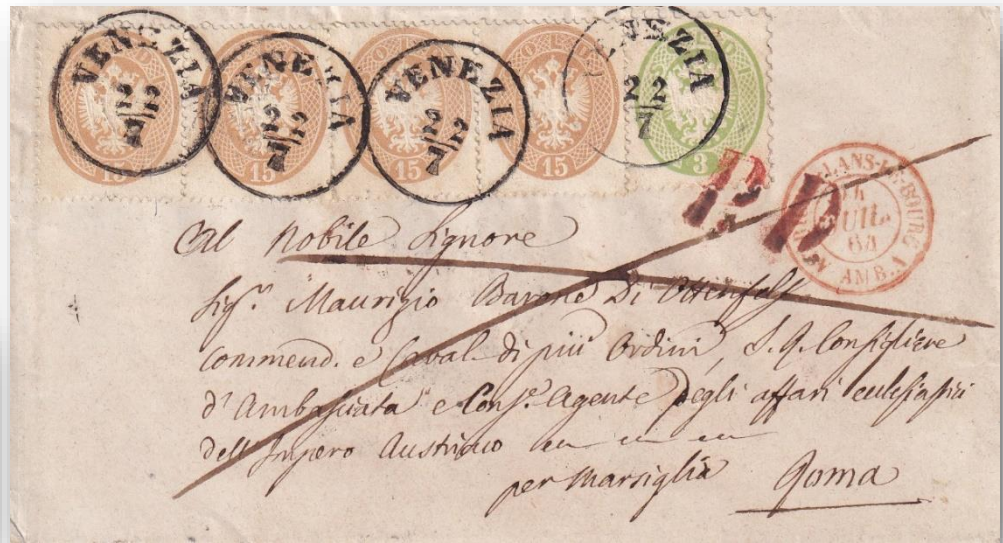 VENEZIA 22/7
VENEZIA 22/7
VENEZIA 22/7
VENEZIA 22/7
15
15
15
15
3
P.D.
LANS-LE-BOURG
JUIL.
64
AMB. A
Al Nobile Signore
Sig.r Maurizio Barone Di
Commend. e Caval. di più Ordini, I. R. Consigliere
d'Ambasciata e Cons.e Agente degli affari ecclesiastici
dell'Impero Austriaco
per Marsiglia Roma